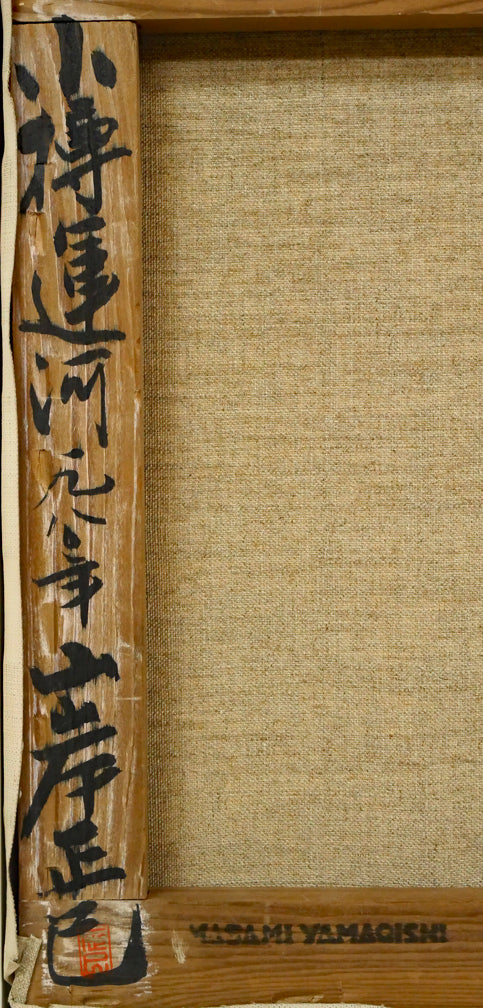 小樽運河 一九八〇年 山岸正巳
MASAMI YAMAGISHI